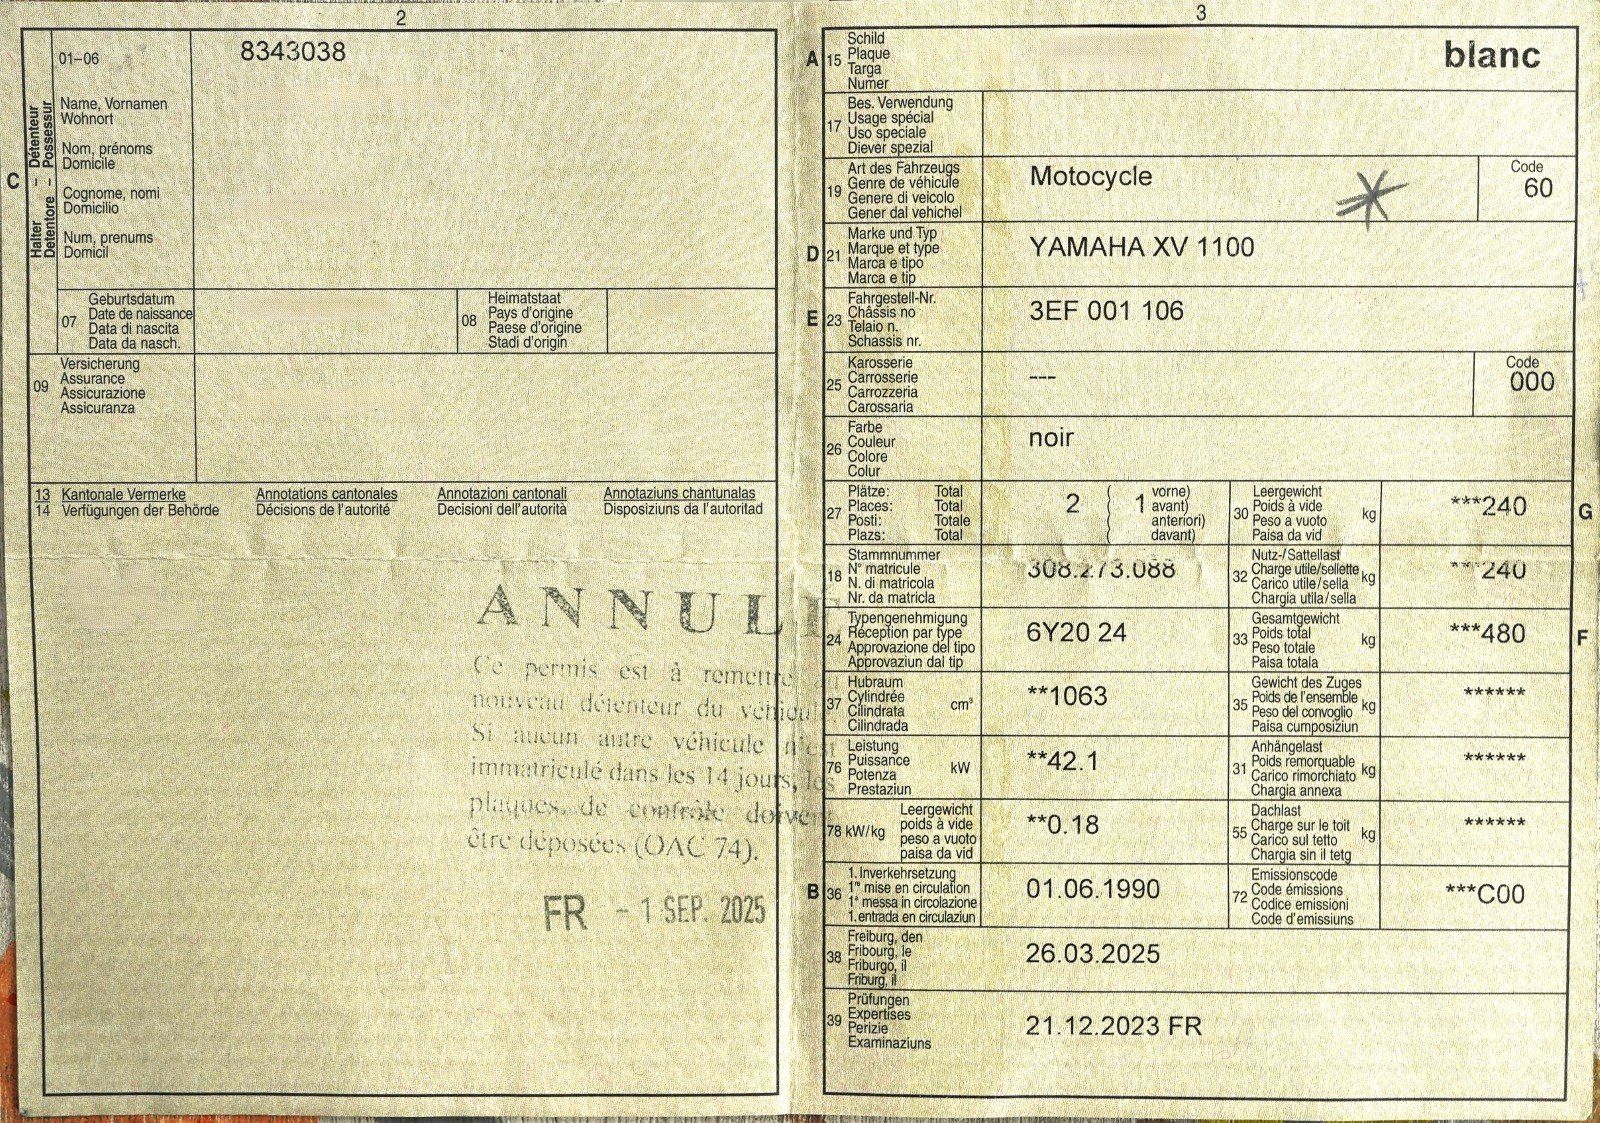 2
01–06
8343038
C
Halter – Détenteur
Detentore – Possessur
Name, Vornamen
Wohnort
Nom, prénoms
Domicile
Cognome, nomi
Domicilio
Num, prenums
Domicil
07
Geburtsdatum
Date de naissance
Data di nascita
Data da nasch.
08
Heimatstaat
Pays d'origine
Paese d'origine
Stadi d'origin
09
Versicherung
Assurance
Assicurazione
Assicuranza
13
14
Kantonale Vermerke
Verfügungen der Behörde
Annotations cantonales
Décisions de l'autorité
Annotazioni cantonali
Decisioni dell'autorità
Annotaziuns chantunalas
Disposiziuns da l'autoritad
ANNULÉ
Ce permis est à remettre au
nouveau détenteur du véhicule.
Si aucun autre véhicule n'est
immatriculé dans les 14 jours, les
plaques de contrôle doivent
être déposées (OAC 74).
FR - 1 SEP. 2025
3
A 15
Schild
Plaque
Targa
Numer
blanc
17
Bes. Verwendung
Usage spécial
Uso speciale
Diever spezial
19
Art des Fahrzeugs
Genre de véhicule
Genere di veicolo
Gener dal vehichel
Motocycle
Code
60
D 21
Marke und Typ
Marque et type
Marca e tipo
Marca e tip
YAMAHA XV 1100
E 23
Fahrgestell-Nr.
Châssis no
Telaio n.
Schassis nr.
3EF 001 106
25
Karosserie
Carrosserie
Carrozzeria
Carossaria
---
Code
000
26
Farbe
Couleur
Colore
Colur
noir
27
Plätze: Total
Places: Total
Posti: Totale
Plazs: Total
2
( 1 vorne)
( avant)
( anteriori)
( davant)
30
Leergewicht
Poids à vide
Peso a vuoto
Paisa da vid
kg
***240
G
18
Stammnummer
N° matricule
N. di matricola
Nr. da matricla
308.273.088
32
Nutz-/Sattellast
Charge utile/sellette
Carico utile/sella
Chargia utila/sella
kg
***240
24
Typengenehmigung
Réception par type
Approvazione del tipo
Approvaziun dal tip
6Y20 24
33
Gesamtgewicht
Poids total
Peso totale
Paisa totala
kg
***480
F
37
Hubraum
Cylindrée
Cilindrata
Cilindrada
cm³
**1063
35
Gewicht des Zuges
Poids de l'ensemble
Peso del convoglio
Paisa cumposiziun
kg
******
76
Leistung
Puissance
Potenza
Prestaziun
kW
**42.1
31
Anhängelast
Poids remorquable
Carico rimorchiato
Chargia annexa
kg
******
78 kW/kg
Leergewicht
poids à vide
peso a vuoto
paisa da vid
**0.18
55
Dachlast
Charge sur le toit
Carico sul tetto
Chargia sin il tetg
kg
******
B 36
1. Inverkehrsetzung
1re mise en circulation
1a messa in circolazione
1. entrada en circulaziun
01.06.1990
72
Emissionscode
Code émissions
Codice emissioni
Code d'emissiuns
***C00
38
Freiburg, den
Fribourg, le
Friburgo, il
Friburg, il
26.03.2025
39
Prüfungen
Expertises
Perizie
Examinaziuns
21.12.2023 FR